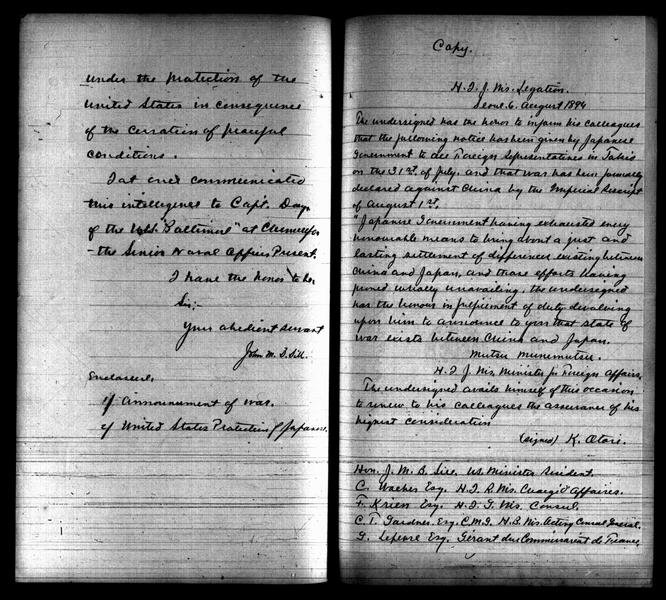 under the protection of the
United States in consequence
of the cessation of peaceful
conditions.
I at once communicated
this intelligence to Capt. Day
of the U.S.S. "Baltimore" at Chemulpo
- the Senior Naval Officer Present.
I have the honor to be
Sir:-
Your obedient servant
John M. B. Sill.
Enclosed.
1/ Announcement of war.
2/ United States Protection of Japanese.
Copy.
H. I. J. Ms. Legation.
Seoul 6. August 1894
The undersigned has the honor to inform his colleagues
that the following notice has been given by Japanese
Government to all Foreign Representatives in Tokio
on the 31st. of July. and that war has been formally
declared against China by the Imperial Rescript
of August 1st.
"Japanese Government having exhausted every
honourable means to bring about a just and
lasting settlement of differences existing between
China and Japan, and those efforts having
proved wholly unavailing, the undersigned
has the honour in fulfilment of duty devolving
upon him to announce to you that state of
war exists between China and Japan.
Mutsu Munemutsu.
H. I. J. Ms. Minister for Foreign Affairs.
The undersigned avails himself of this occasion
to renew to his colleagues the assurance of his
highest consideration
(signed) K. Otori.
Hon. J. M. B. Sill. U.S. Minister Resident.
C. Waeber Esq. H. I. R. Ms. Chargé d'Affaires.
F. Krien Esq. H. I. G. Ms. Consul.
C. T. Gardner. Esq. C.M.G. H. B. Ms. Acting Consul General.
G. Lefevre Esq. Gérant du Commissariat de France.